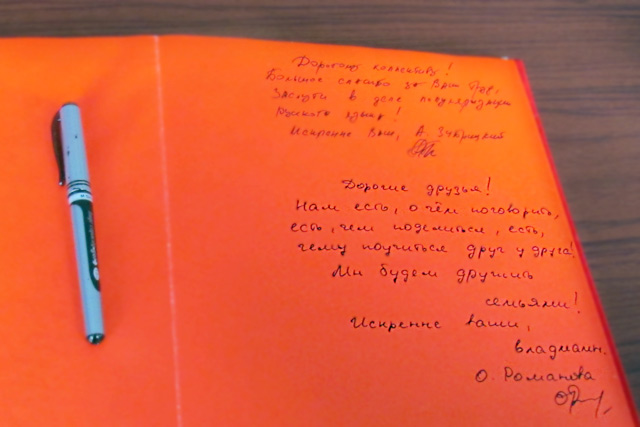 Дорогому коллективу!
Большое спасибо за Ваш труд,
заслуги в деле популяризации
русского языка!
Искренне Ваш, А.
Дорогие друзья!
Нам есть, о чём поговорить,
есть, чем поделиться, есть,
чему поучиться друг у друга!
Мы будем дружить
семьями!
Искренне ваши,
О. Романова